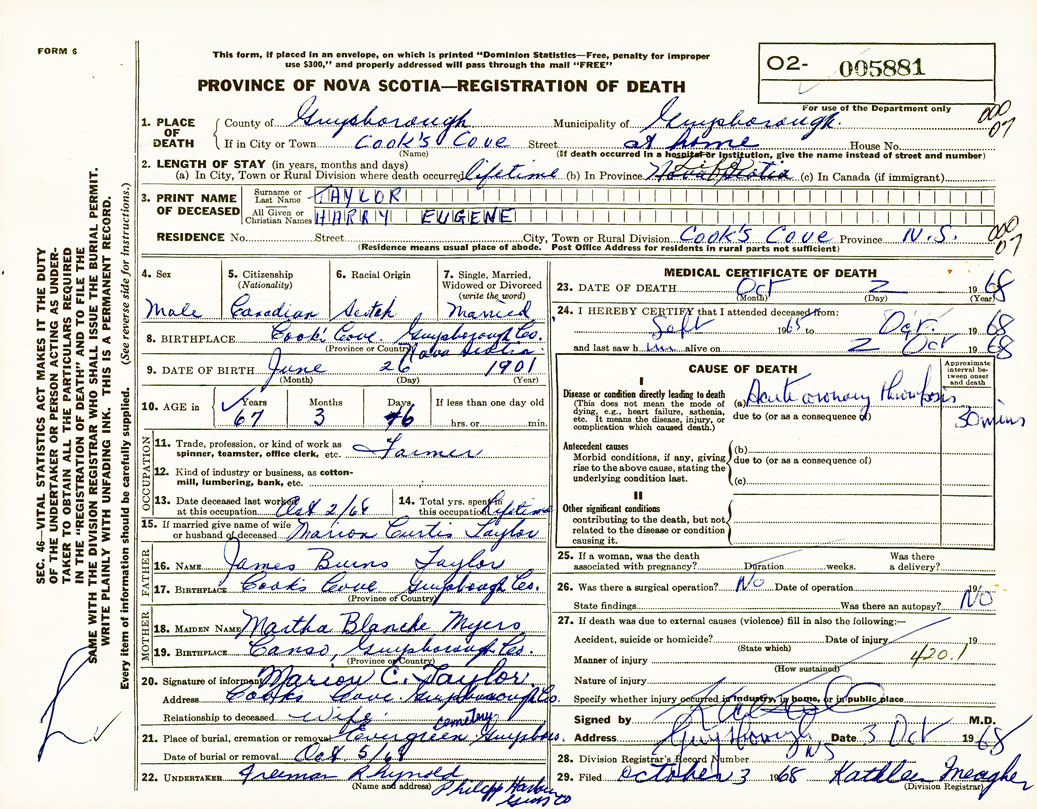 FORM 6
This form, if placed in an envelope, on which is printed "Dominion Statistics—Free, penalty for improper
use $300," and properly addressed will pass through the mail "FREE"
PROVINCE OF NOVA SCOTIA—REGISTRATION OF DEATH
O2- 005881
For use of the Department only
000
07
1. PLACE OF DEATH
County of Guysborough Municipality of Guysborough
If in City or Town Cook's Cove Street at home House No.
(Name) (If death occurred in a hospital or institution, give the name instead of street and number)
2. LENGTH OF STAY (in years, months and days)
(a) In City, Town or Rural Division where death occurred lifetime (b) In Province Nova Scotia (c) In Canada (if immigrant)
3. PRINT NAME OF DECEASED
Surname or Last Name TAYLOR
All Given or Christian Names HARRY EUGENE
000
07
RESIDENCE No. Street City, Town or Rural Division Cook's Cove Province N.S.
(Residence means usual place of abode. Post Office Address for residents in rural parts not sufficient)
SEC. 46—VITAL STATISTICS ACT MAKES IT THE DUTY
OF THE UNDERTAKER OR PERSON ACTING AS UNDER-
TAKER TO OBTAIN ALL THE PARTICULARS REQUIRED
IN THE "REGISTRATION OF DEATH" AND TO FILE THE
SAME WITH THE DIVISION REGISTRAR WHO SHALL ISSUE THE BURIAL PERMIT.
WRITE PLAINLY WITH UNFADING INK. THIS IS A PERMANENT RECORD.
Every item of information should be carefully supplied. (See reverse side for instructions.)
4. Sex
Male
5. Citizenship
(Nationality)
Canadian
6. Racial Origin
Scotch
7. Single, Married,
Widowed or Divorced
(write the word)
Married
8. BIRTHPLACE Cook's Cove Guysborough Co.
(Province or Country) Nova Scotia
9. DATE OF BIRTH June 26 1901
(Month) (Day) (Year)
10. AGE in Years Months Days If less than one day old
67 3 6 hrs. or min.
OCCUPATION
11. Trade, profession, or kind of work as
spinner, teamster, office clerk, etc. Farmer
12. Kind of industry or business, as cotton-
mill, lumbering, bank, etc.
13. Date deceased last worked
at this occupation Oct 2/68
14. Total yrs. spent in
this occupation Lifetime
15. If married give name of wife
or husband of deceased Marion Curtis Taylor
FATHER
16. NAME James Burns Taylor
17. BIRTHPLACE Cook's Cove Guysborough Co.
(Province of Country)
MOTHER
18. MAIDEN NAME Martha Blanche Myers
19. BIRTHPLACE Canso, Guysborough Co.
(Province or Country)
20. Signature of informant Marion C. Taylor
Address Cooks Cove Guysborough Co.
Relationship to deceased Wife
cemetery
21. Place of burial, cremation or removal Evergreen Guysboro.
Date of burial or removal Oct 5/68
22. UNDERTAKER Freeman Rhynold
(Name and address) Philipp Harbour
Guys Co
MEDICAL CERTIFICATE OF DEATH
23. DATE OF DEATH Oct 2 1968
(Month) (Day) (Year)
24. I HEREBY CERTIFY that I attended deceased from:
Sept 1968 to Oct. 1968
and last saw him alive on 2 Oct 1968
CAUSE OF DEATH
Approximate
interval be-
tween onset
and death
I
Disease or condition directly leading to death
(This does not mean the mode of
dying, e.g., heart failure, asthenia,
etc. It means the disease, injury, or
complication which caused death.)
(a) Acute coronary thrombosis
due to (or as a consequence of)
30 mins
Antecedent causes
Morbid conditions, if any, giving
rise to the above cause, stating the
underlying condition last.
(b)
due to (or as a consequence of)
(c)
II
Other significant conditions
contributing to the death, but not
related to the disease or condition
causing it.
25. If a woman, was the death Was there
associated with pregnancy? Duration weeks. a delivery?
26. Was there a surgical operation? No Date of operation 19
State findings Was there an autopsy? No
27. If death was due to external causes (violence) fill in also the following:—
Accident, suicide or homicide? Date of injury 19
(State which)
420.1
Manner of injury
(How sustained)
Nature of injury
Specify whether injury occurred in industry, in home, or in public place
Signed by M.D.
Address Guysborough NS Date 3 Oct 1968
28. Division Registrar's Record Number
29. Filed October 3 1968 Kathleen Meagher
(Division Registrar)